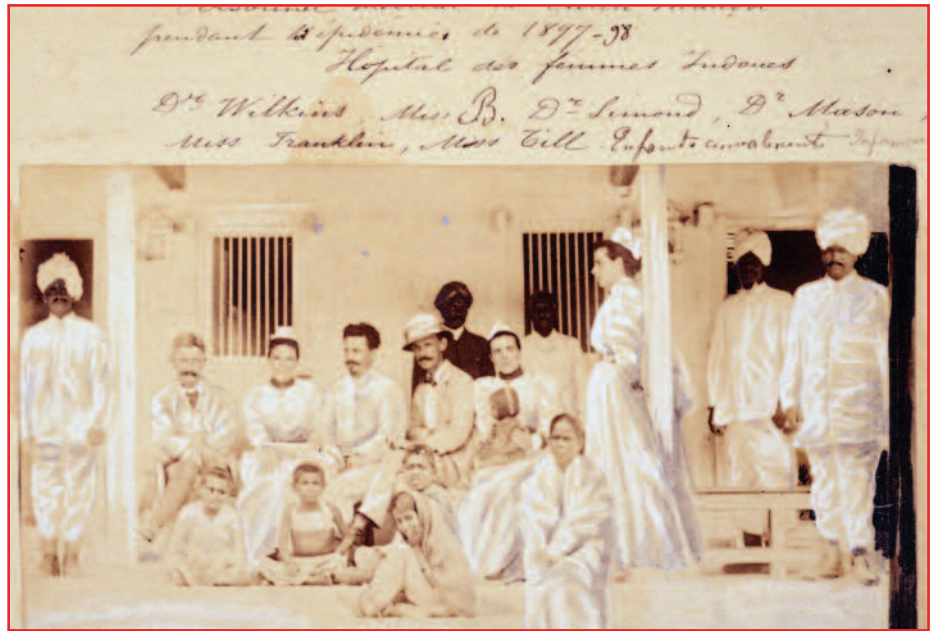 Personnel
pendant l'épidémie de 1897-98
Hôpital des femmes Indoues
Dr Wilkins Miss B. Dr Simond, Dr Mason,
Miss Franklin, Miss Till Enfants convalescents